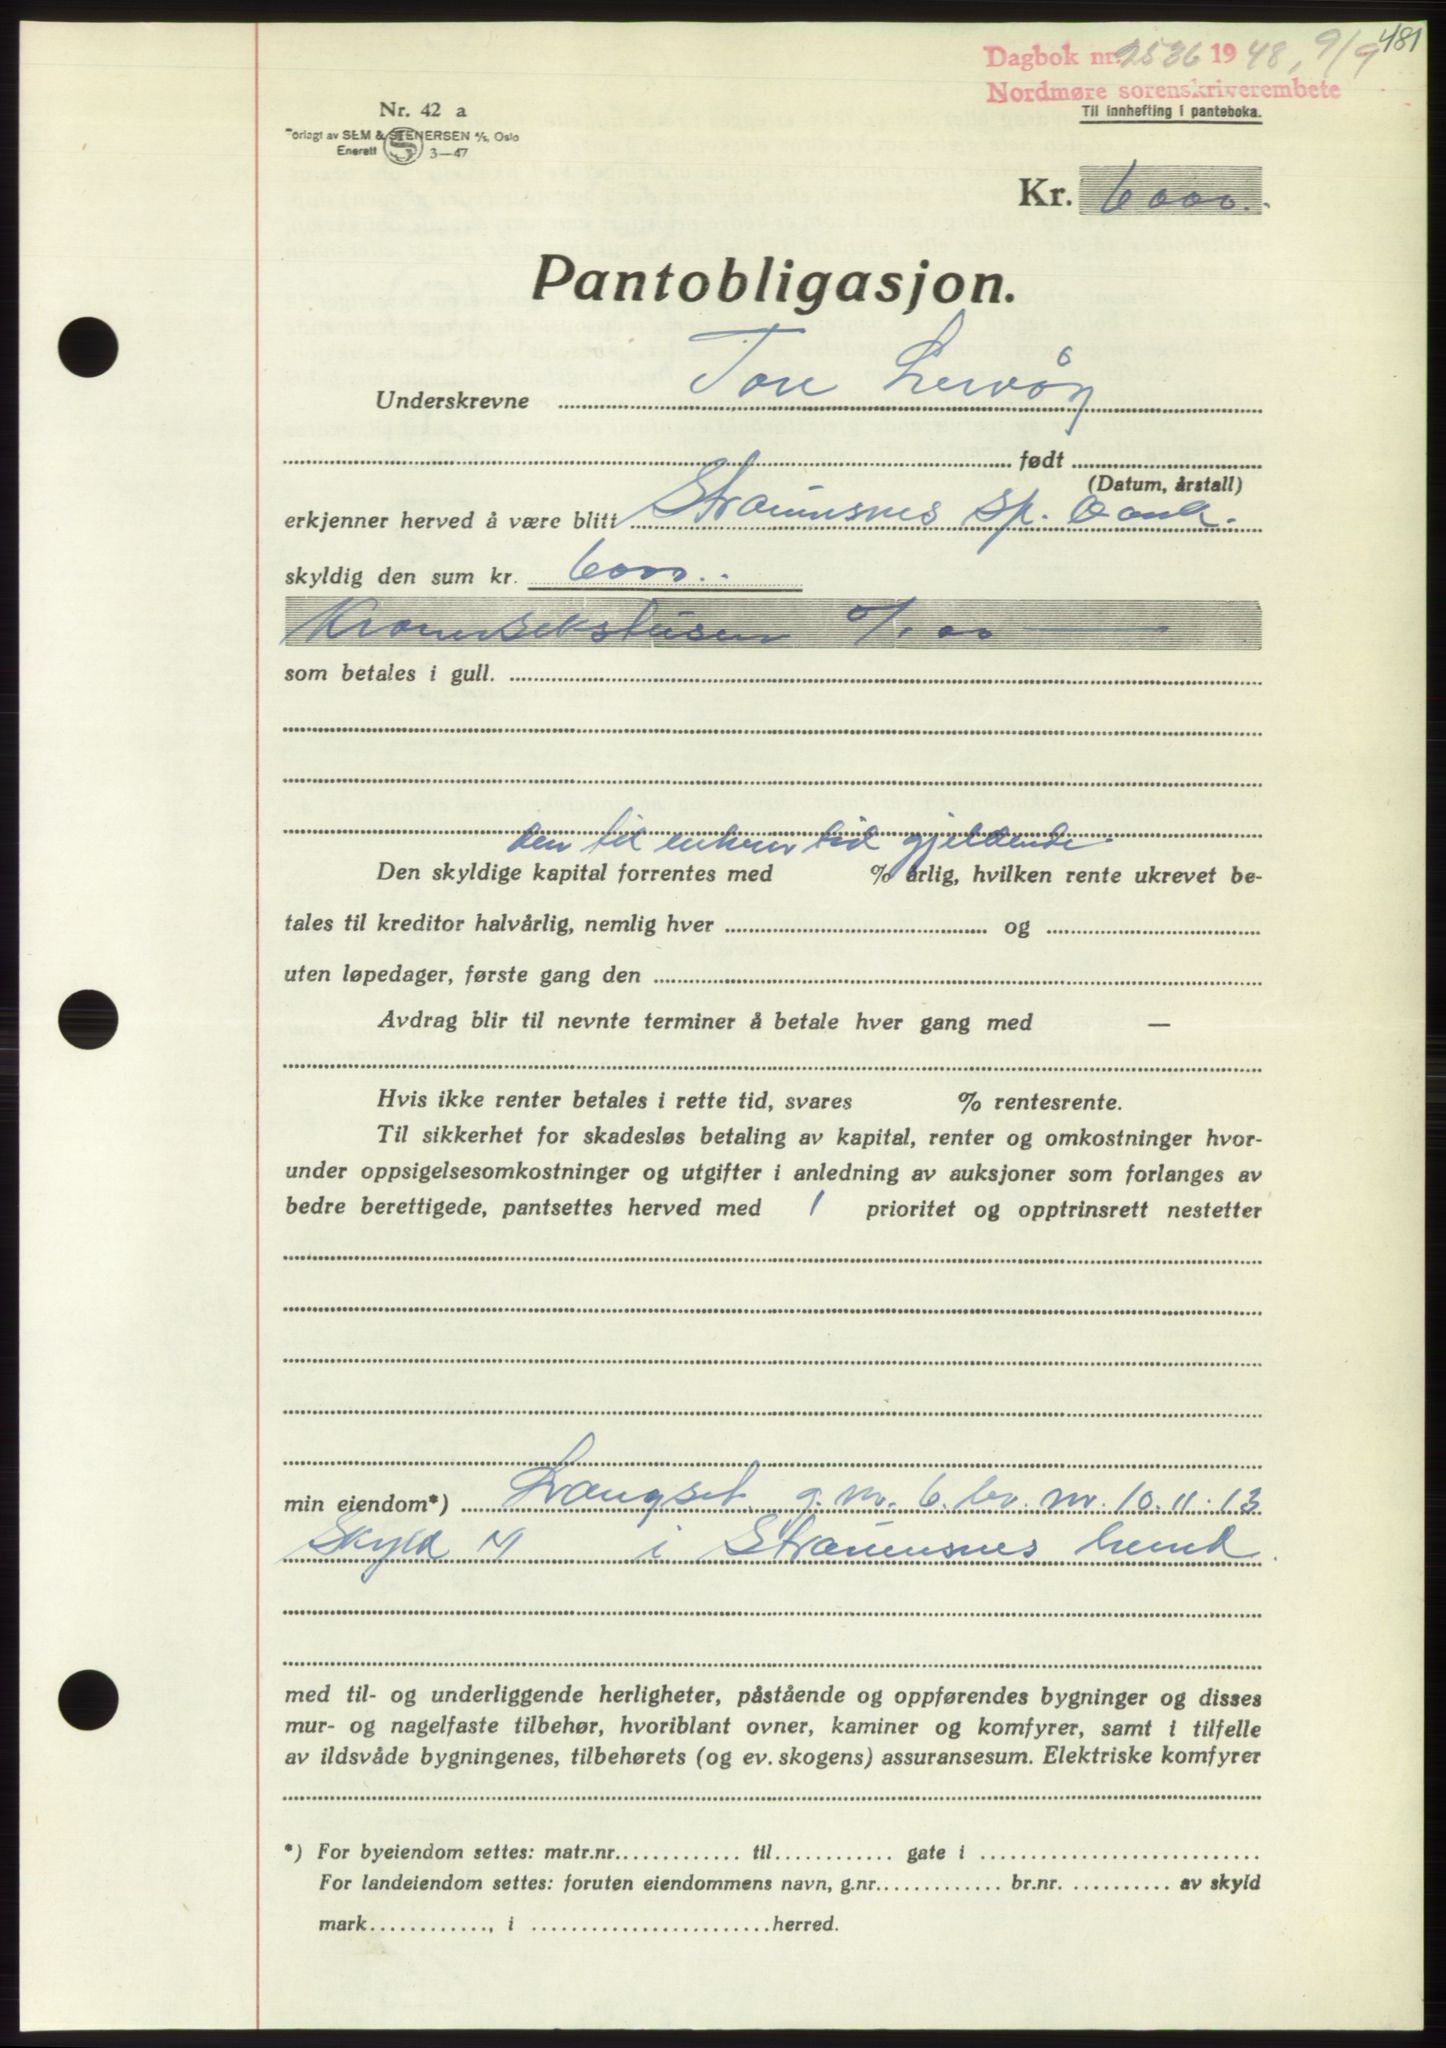 481
Dagbok nr. 2536 1948, 9/9
Nordmøre sorenskriverembete
Til innhefting i panteboka.
Nr. 42 a
Forlagt av SEM & STENERSEN A/S, Oslo
Enerett S 3—47
Kr. 6000.-
Pantobligasjon.
Underskrevne Tore
født
(Datum, årstall)
erkjenner herved å være blitt Straumsnes sp. bank.
skyldig den sum kr. 6000.-
Kronersekstusen 0/00
som betales i gull.
den til enhver tid gjeldende
Den skyldige kapital forrentes med % årlig, hvilken rente ukrevet be-
tales til kreditor halvårlig, nemlig hver og
uten løpedager, første gang den
Avdrag blir til nevnte terminer å betale hver gang med —
Hvis ikke renter betales i rette tid, svares % rentesrente.
Til sikkerhet for skadesløs betaling av kapital, renter og omkostninger hvor-
under oppsigelsesomkostninger og utgifter i anledning av auksjoner som forlanges av
bedre berettigede, pantsettes herved med 1 prioritet og opptrinsrett nestetter
min eiendom*) Langset g. nr. 6. br. nr. 10. 11. 13
Skyld M i Straumsnes herred.
med til- og underliggende herligheter, påstående og oppførendes bygninger og disses
mur- og nagelfaste tilbehør, hvoriblant ovner, kaminer og komfyrer, samt i tilfelle
av ildsvåde bygningenes, tilbehørets (og ev. skogens) assuransesum. Elektriske komfyrer
*) For byeiendom settes: matr.nr. til gate i
For landeiendom settes: foruten eiendommens navn, g.nr. br.nr. av skyld
mark , i herred.